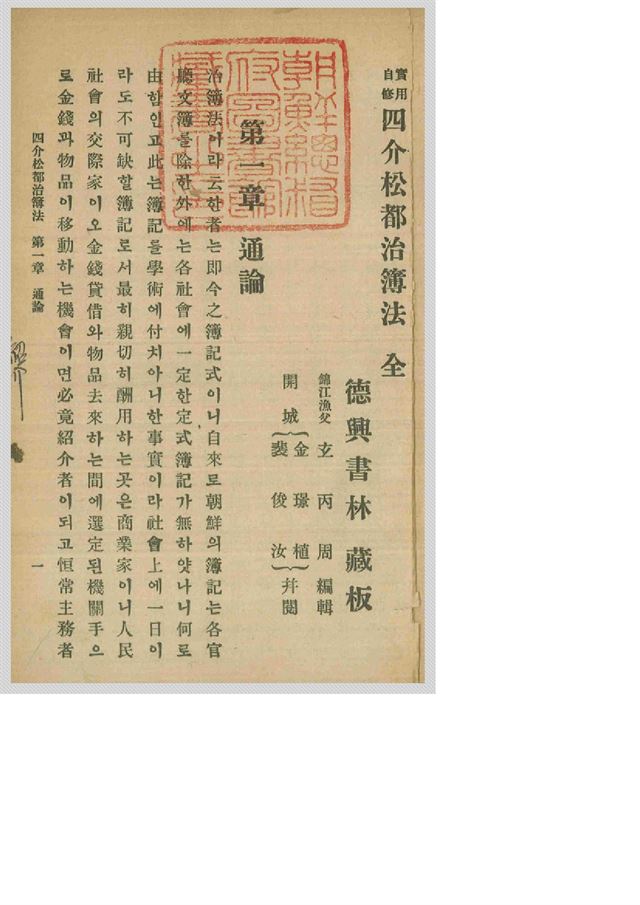 實用
自修 四介松都治簿法 全
德興書林 藏板
錦江漁父 玄丙周 編輯
開城 {金璟植 裴俊汝} 幷閱
朝鮮總督府圖書館藏書之印
第一章 通論
治簿法이라云한者는即今之簿記式이니自來로朝鮮의簿記는各官
廳文簿를除한外에는各社會에一定한定式簿記가無하얏나니何로
由함인고此는簿記를學術에付치아니한事實이라社會上에一日이
라도不可缺할簿記로서最히親切히酬用하는곳은商業家이니人民
社會의交際家이오金錢貸借와物品去來하는間에選定된機關手으
로金錢과物品이移動하는機會이면必竟紹介者이되고恒常主務者
四介松都治簿法 第一章 通論
一